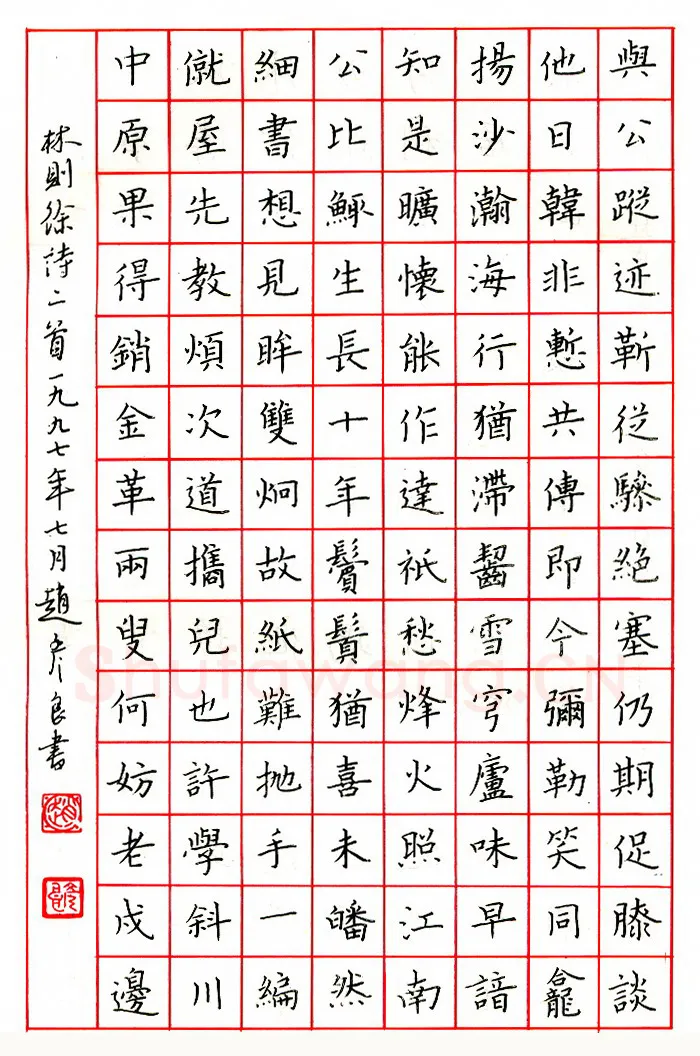 與公蹤迹靳從驂絕塞仍期促膝談
他日韓非慙共傳即今彌勒笑同龕
揚沙瀚海行猶滯齧雪穹廬味早諳
知是曠懷能作達祇愁烽火照江南
公比鯫生長十年鬢鬚猶喜未皤然
細書想見眸雙炯故紙難抛手一編
僦屋先教煩次道攜兒也許學斜川
中原果得銷金革兩叟何妨老戍邊
林則徐詩二首一九九七年七月趙彥良書
Shufawang.CN